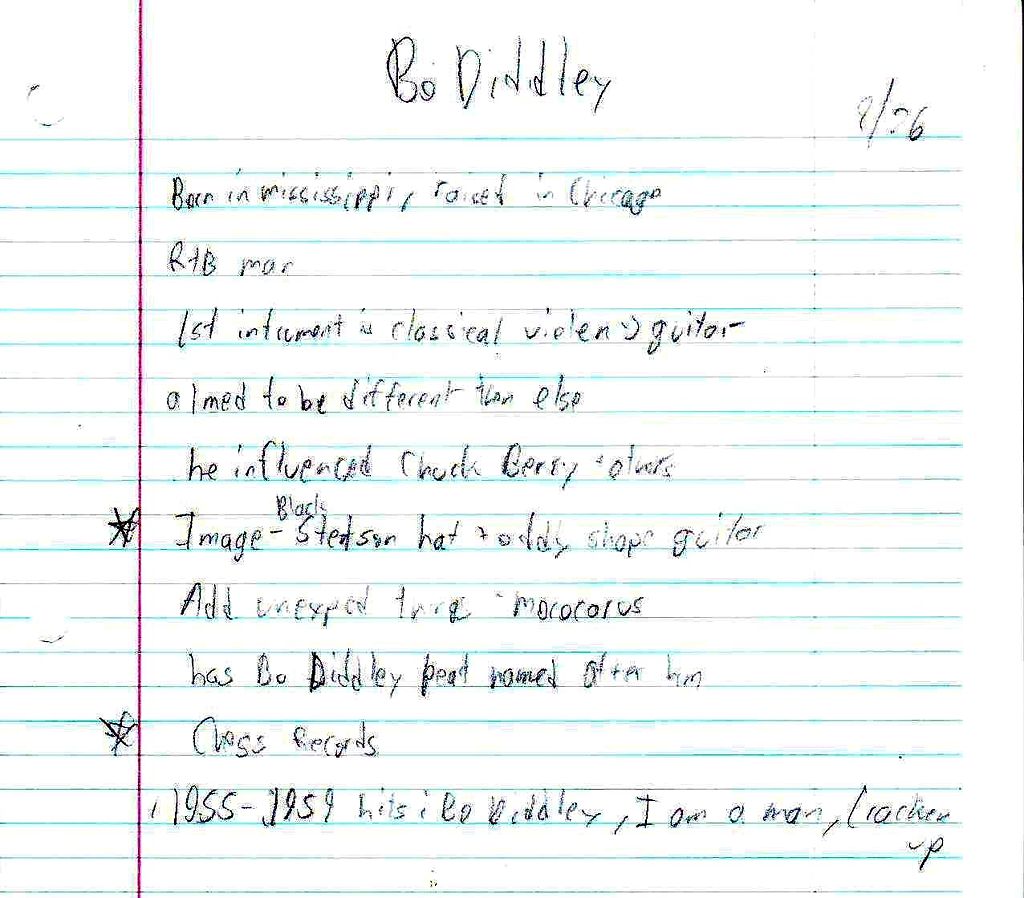 Bo Diddley
Born in mississippi, raised in Chicago
R+B man
1st intrument is classical violen guitar
aimed to be different than else
he influenced Chuck Berry + others
Black
Image - Stetson hat + oddly shape guitar
Add unexped
has Bo Diddley beat named after hm
Chess Records
1955-1959 hits: Bo Diddley, I am a man, Cracken
up